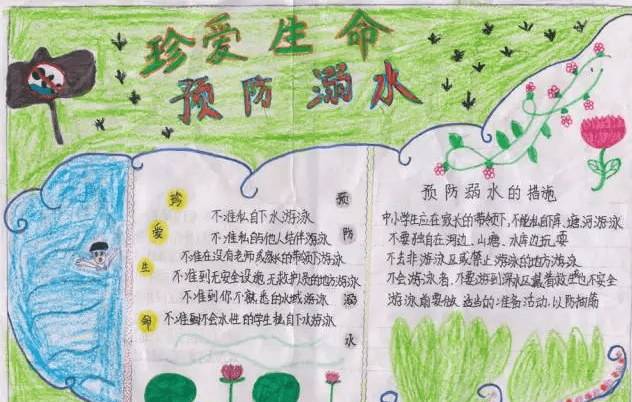 珍爱生命
预防溺水
珍爱生命
预防溺水
不准私自下水游泳
不准私自与他人结伴游泳
不准在没有老师或家长的带领下游泳
不准到无安全设施、无救护员的地方游泳
不准到你不熟悉的水域游泳
不准到不会水性的学生私自下水游泳
预防溺水的措施
中小学生应在家长的带领下,不能私自库、塘、河游泳
不要独自在河边、山塘、水库边玩耍
不去非游泳区或禁止游泳的地方游泳
不会游泳者,不要游到深水区,戴着救生也不安全
游泳前要做适当的准备活动,以防抽筋